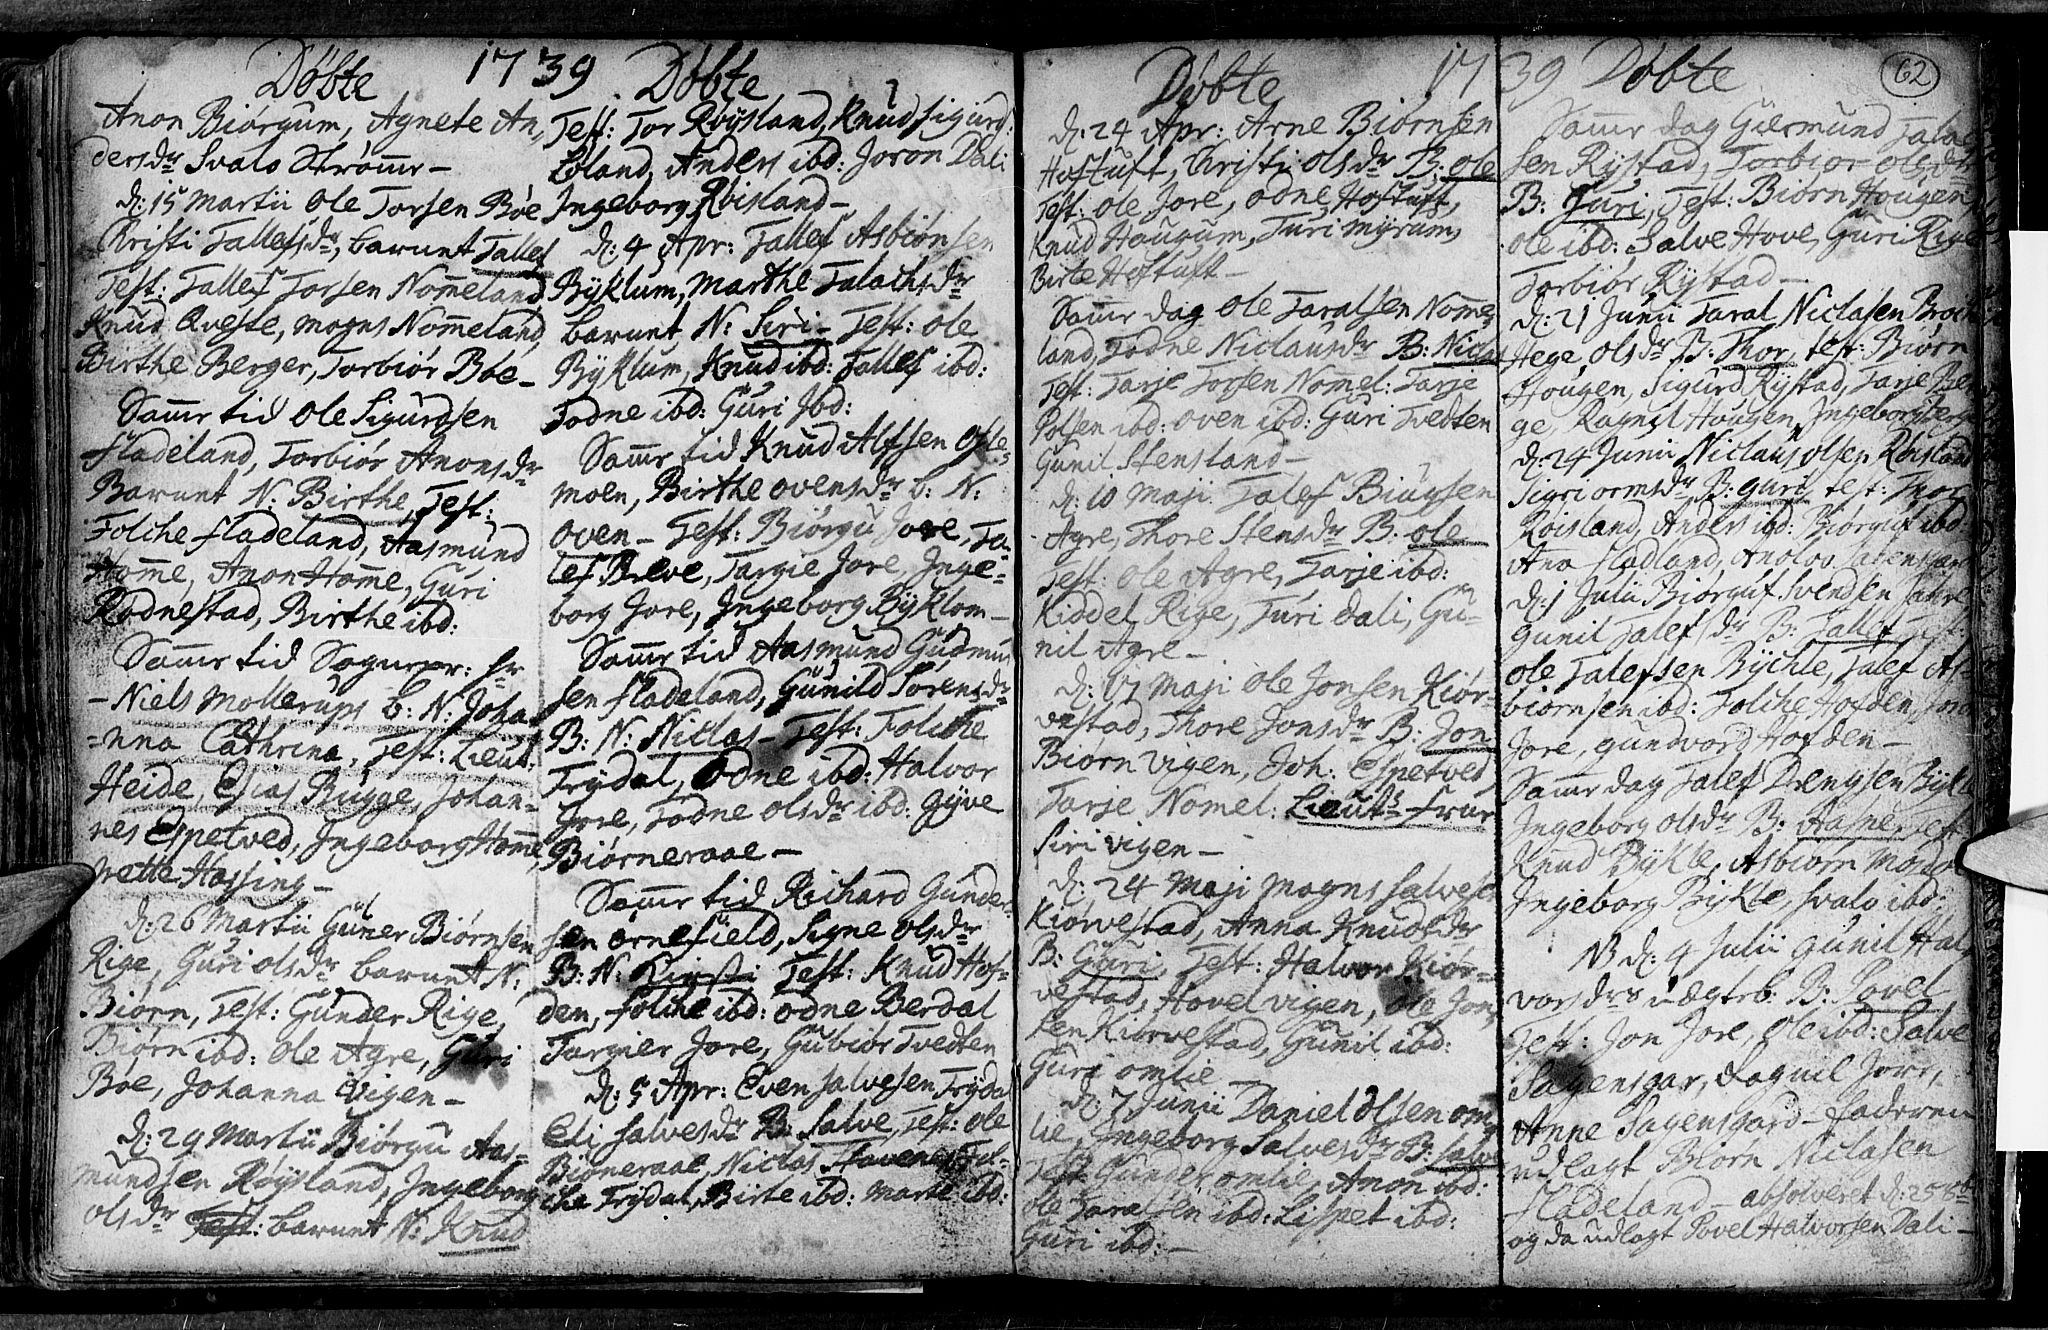 Döbte 1739 Döbte
Anon Biörgum, Agnete An,
dersdr Svalo Strömr –
d: 15 Martii Ole Torsen Böe
Kristi Tallefsdr, barnet Tallef
Test: Tallef Torsen Nom̄eland
Knud Qveste, Mogns Nom̄eland,
Birthe Berger, Torbiör Böe –
Sam̄r tid Ole Sigurdsen
Fladeland, Torbiör Anonsdr
Barnet N: Birthe, Test:
Folche Fladeland, Aasmund
Hom̄e, Anon Hom̄e, Guri
Rodnestad, Birthe ibd:
Sam̄r tid Sognepr: Hr
– Niels Mollerups b: N: Joha
=nna Cathrina, Test: Lieut:
Heide, Elias Bugge, Johan=
nes Espetved, Ingeborg Hom̄e,
Hassing –
d: 26 Martii Guner Biörnsen
Rige, Guri olsdr barnet N:
Biörn, Test: Gunder Rige,
Biörn ibd: Ole Agre, Guri
Böe, Johanna Vigen –
d: 29 Martii Biörgu Aas=
mundsen Röysland, Ingeborg
olsdr barnet N: Knud
Test: Tor Röysland, Knud Sigurds:
Löland, Anders ibd: Joron Dali
Ingeborg Röisland –
d: 4 Apr: Tallef Asbiönsen
Byklum, Marthe Talachsdr
barnet N: Siri – Test: Ole
Byklum, Knud ibd: Tallef ibd:
Todne ibd: Guri Ibd:
Sam̄r tid Knud Alfsen
moen, Birthe ovensdr b: N:
oven – Test: Biörgu Jore, Ta=
lef Breve, Targie Jore, Inge=
borg Jore, Ingeborg Byklom –
Sam̄r tid Aasmund Gudmun
sen Fladeland, Gunild Sörensdr
B: N: Niclas – Test: Folche
Trydal, Odne ibd: Halvor
Jore, Todne olsdr ibd: Gyve
Biörneraae –
Sam̄r tid Richard Gunder=
sen örnefield, Signe olsdr
B: N: Kirsti Test: Knud Hof=
den, Folche ibd: Odne Berdal
Targier Jore, Gubiör Tvedten
d: 5 Apr: Even Salvesen Trydal
Eli Salvesdr B: Salve, Test: Ole
Biörneraae, Niclas Stavenes, Fol=
che Trydal, Birte ibd: Marte ibd:
Döbte 1739 Döbte 62
d: 24 Apr: Arne Biörnsen
Hoftuft, Christi olsdr B: Ole
Test: Ole Jore, Odne Hoftuft,
Knud Haugum, Turi myrum,
Birte Hoftuft –
Sam̄r dag Ole Taralsen Nom̄e,
land, Todne Niclausdr B: Niclas
Test: Tarje Torsen Nom̄el: Tarje
Polsen ibd: oven ibd: Guri Tvedten
Gunil Stensland –
d: 10 Maji Talef Biugsen
Agre, Thore Stensdr B: Ole
Test: Ole Agre, Tarje ibd:
Kiddel Rige, Turi Dali, Gu=
nil Agre –
d: 17 Maji Ole Jonsen Kiör=
vestad, Thore Jonsdr B: Jon
Biörn vigen, Joh: Espetved,
Tarje Nomel: Lieuts Frue
Siri vigen –
d: 24 Maji Mogns Salvesen
Kiörvestad, Anna Knudsdr
B: Guri, Test: Halvor Kiör=
vestad, Hovel vigen, Ole Jon,
sen Kiörvestad, Gunil ibd:
Guri omlie –
d: 7 Junii Daniel Olsen om,
lie, Ingeborg Salvesdr B: Salve
Test: Gunder omlie, Anon ibd:
Ole Taralsen ibd: Lispet ibd:
Guri ibd: –
Sam̄r dag Giermund Talve
sen Rystad, Torbiör olsdr
B: Guri, Test: Biörn Hougen,
Ole ibd: Salve Hove, Guri Rige
Torbiör Rystad –
d: 21 Junii Taral Niclasen Brock
Hege olsdr B: Thor, test: Biörn
Hougen, Sigurd Rystad, Tarje Ber
ge, Ragnil Hougen, Ingeborg Berge
d: 24 Junii Niclaus Olsen Röisland
Sigri ormsdr B: Guri, test: Thor
Röisland, Anders ibd: Biörguf ibd:
Ana Fladland, Anolov
d: 1 Julii Biörguf Svendsen
Gunil Talefsdr B: Tallef Test:
Ole Talefsen Bychle, Talef As=
biörnsen ibd: Folche Hofden,
Jore, Gundvord Hofden –
Sam̄r dag Talef Drengsen Bykle
Ingeborg olsdr B: Aasne, Test:
Knud Bykle, Asbiörn
Ingeborg Bykle, Svalo ibd:
NB d: 4 Julii Gunil Hal,
vorsdrs uægteb: B: Povel
Test: Jon Jore, Ole ibd: Salve
Sagensgar, Ragnil Jore,
Anne Sagensgard – Faderen
udlagt Biörn Niclasen
Fladeland – absolveret d: 25 8br
og da udlagt Povel Halvorsen Dali –